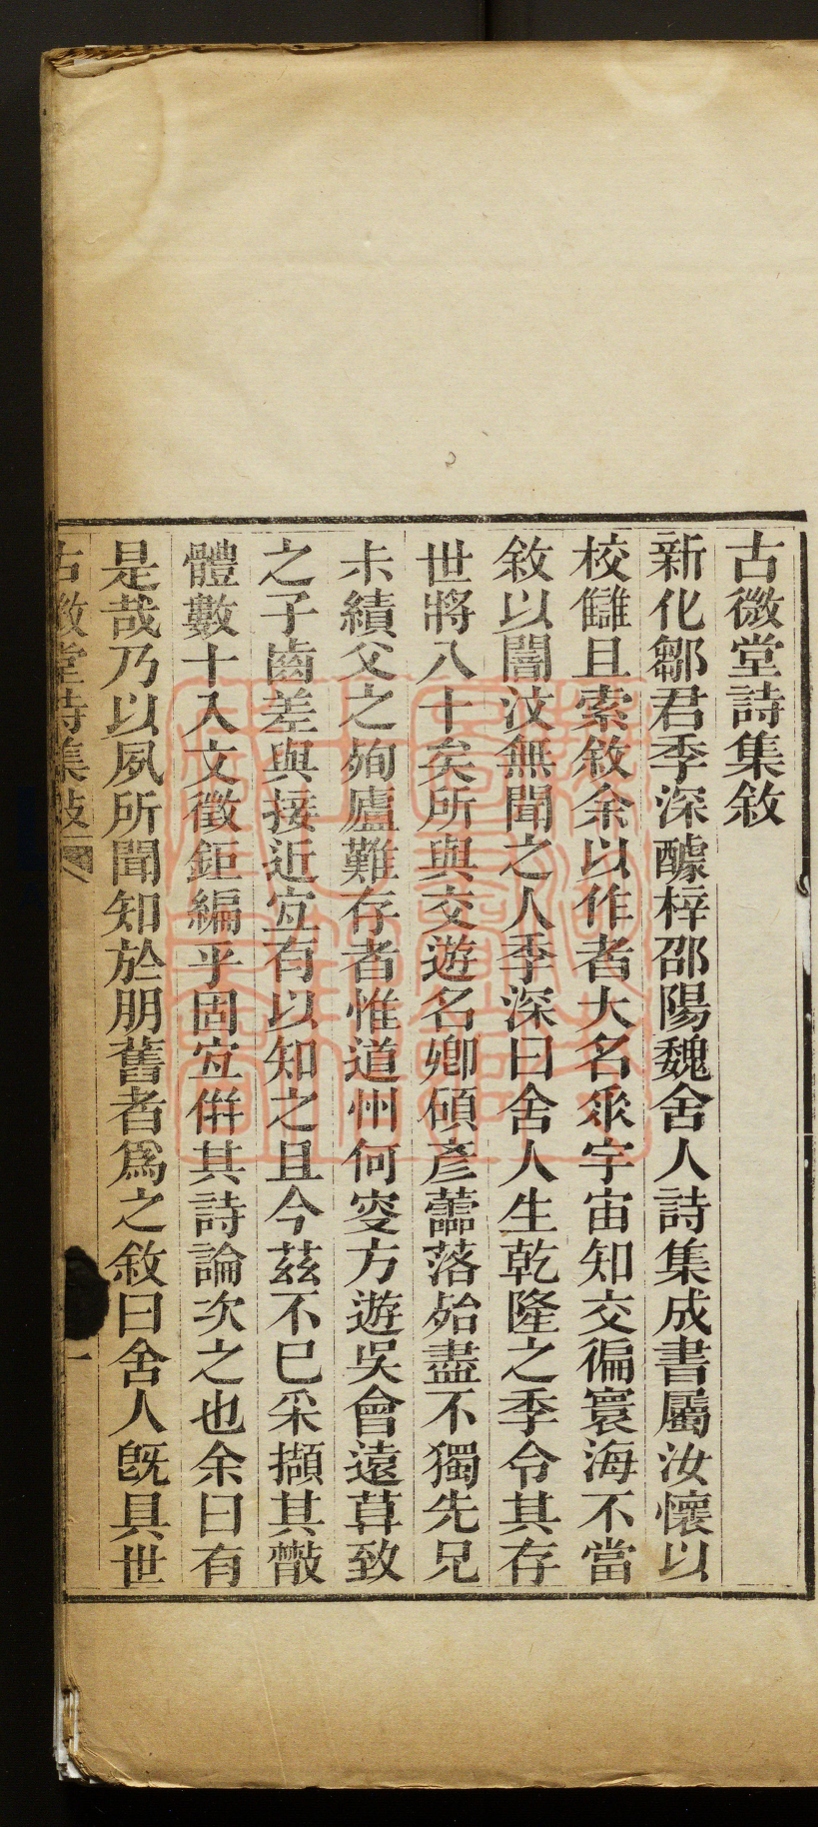 古微堂詩集敘
新化鄒君季深醵梓邵陽魏舍人詩集成書屬汝懷以
校讎且索敘余以作者大名乑宇宙知交徧寰海不當
敘以闇汶無聞之人季深曰舍人生乾隆之季令其存
世將八十矣所與交遊名卿碩彥蘦落殆盡不獨先兄
尗績父之殉廬難存者惟道州何叜方遊吳會遠萛致
之子齒差與接近宐有以知之且今茲不已采擷其
體數十入文徵鉅編乎固宐倂其詩論次之也余曰有
是哉乃以夙所聞知於朋舊者爲之敘曰舍人旣具世
古微堂詩集敍 一